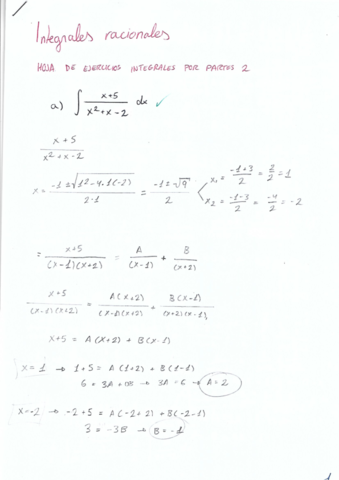 Integrales racionales
HOJA DE EJERCICIOS INTEGRALES POR PARTES 2
a) ∫ x+5 / x²+x-2 dx ✓
x+5 / x²+x-2
x = -1±√1²-4·1·(-2) / 2·1 = -1±√9 / 2
x₁ = -1+3 / 2 = 2/2 = 1
x₂ = -1-3 / 2 = -4/2 = -2
= x+5 / (x-1)(x+2) = A / (x-1) + B / (x+2)
x+5 / (x-1)(x+2) = A(x+2) / (x-1)(x+2) + B(x-1) / (x+2)(x-1)
x+5 = A(x+2) + B(x-1)
x=1 → 1+5 = A(1+2) + B(1-1)
6 = 3A+0B → 3A=6 → A=2
x=-2 → -2+5 = A(-2+2) + B(-2-1)
3 = -3B → B=-1
1